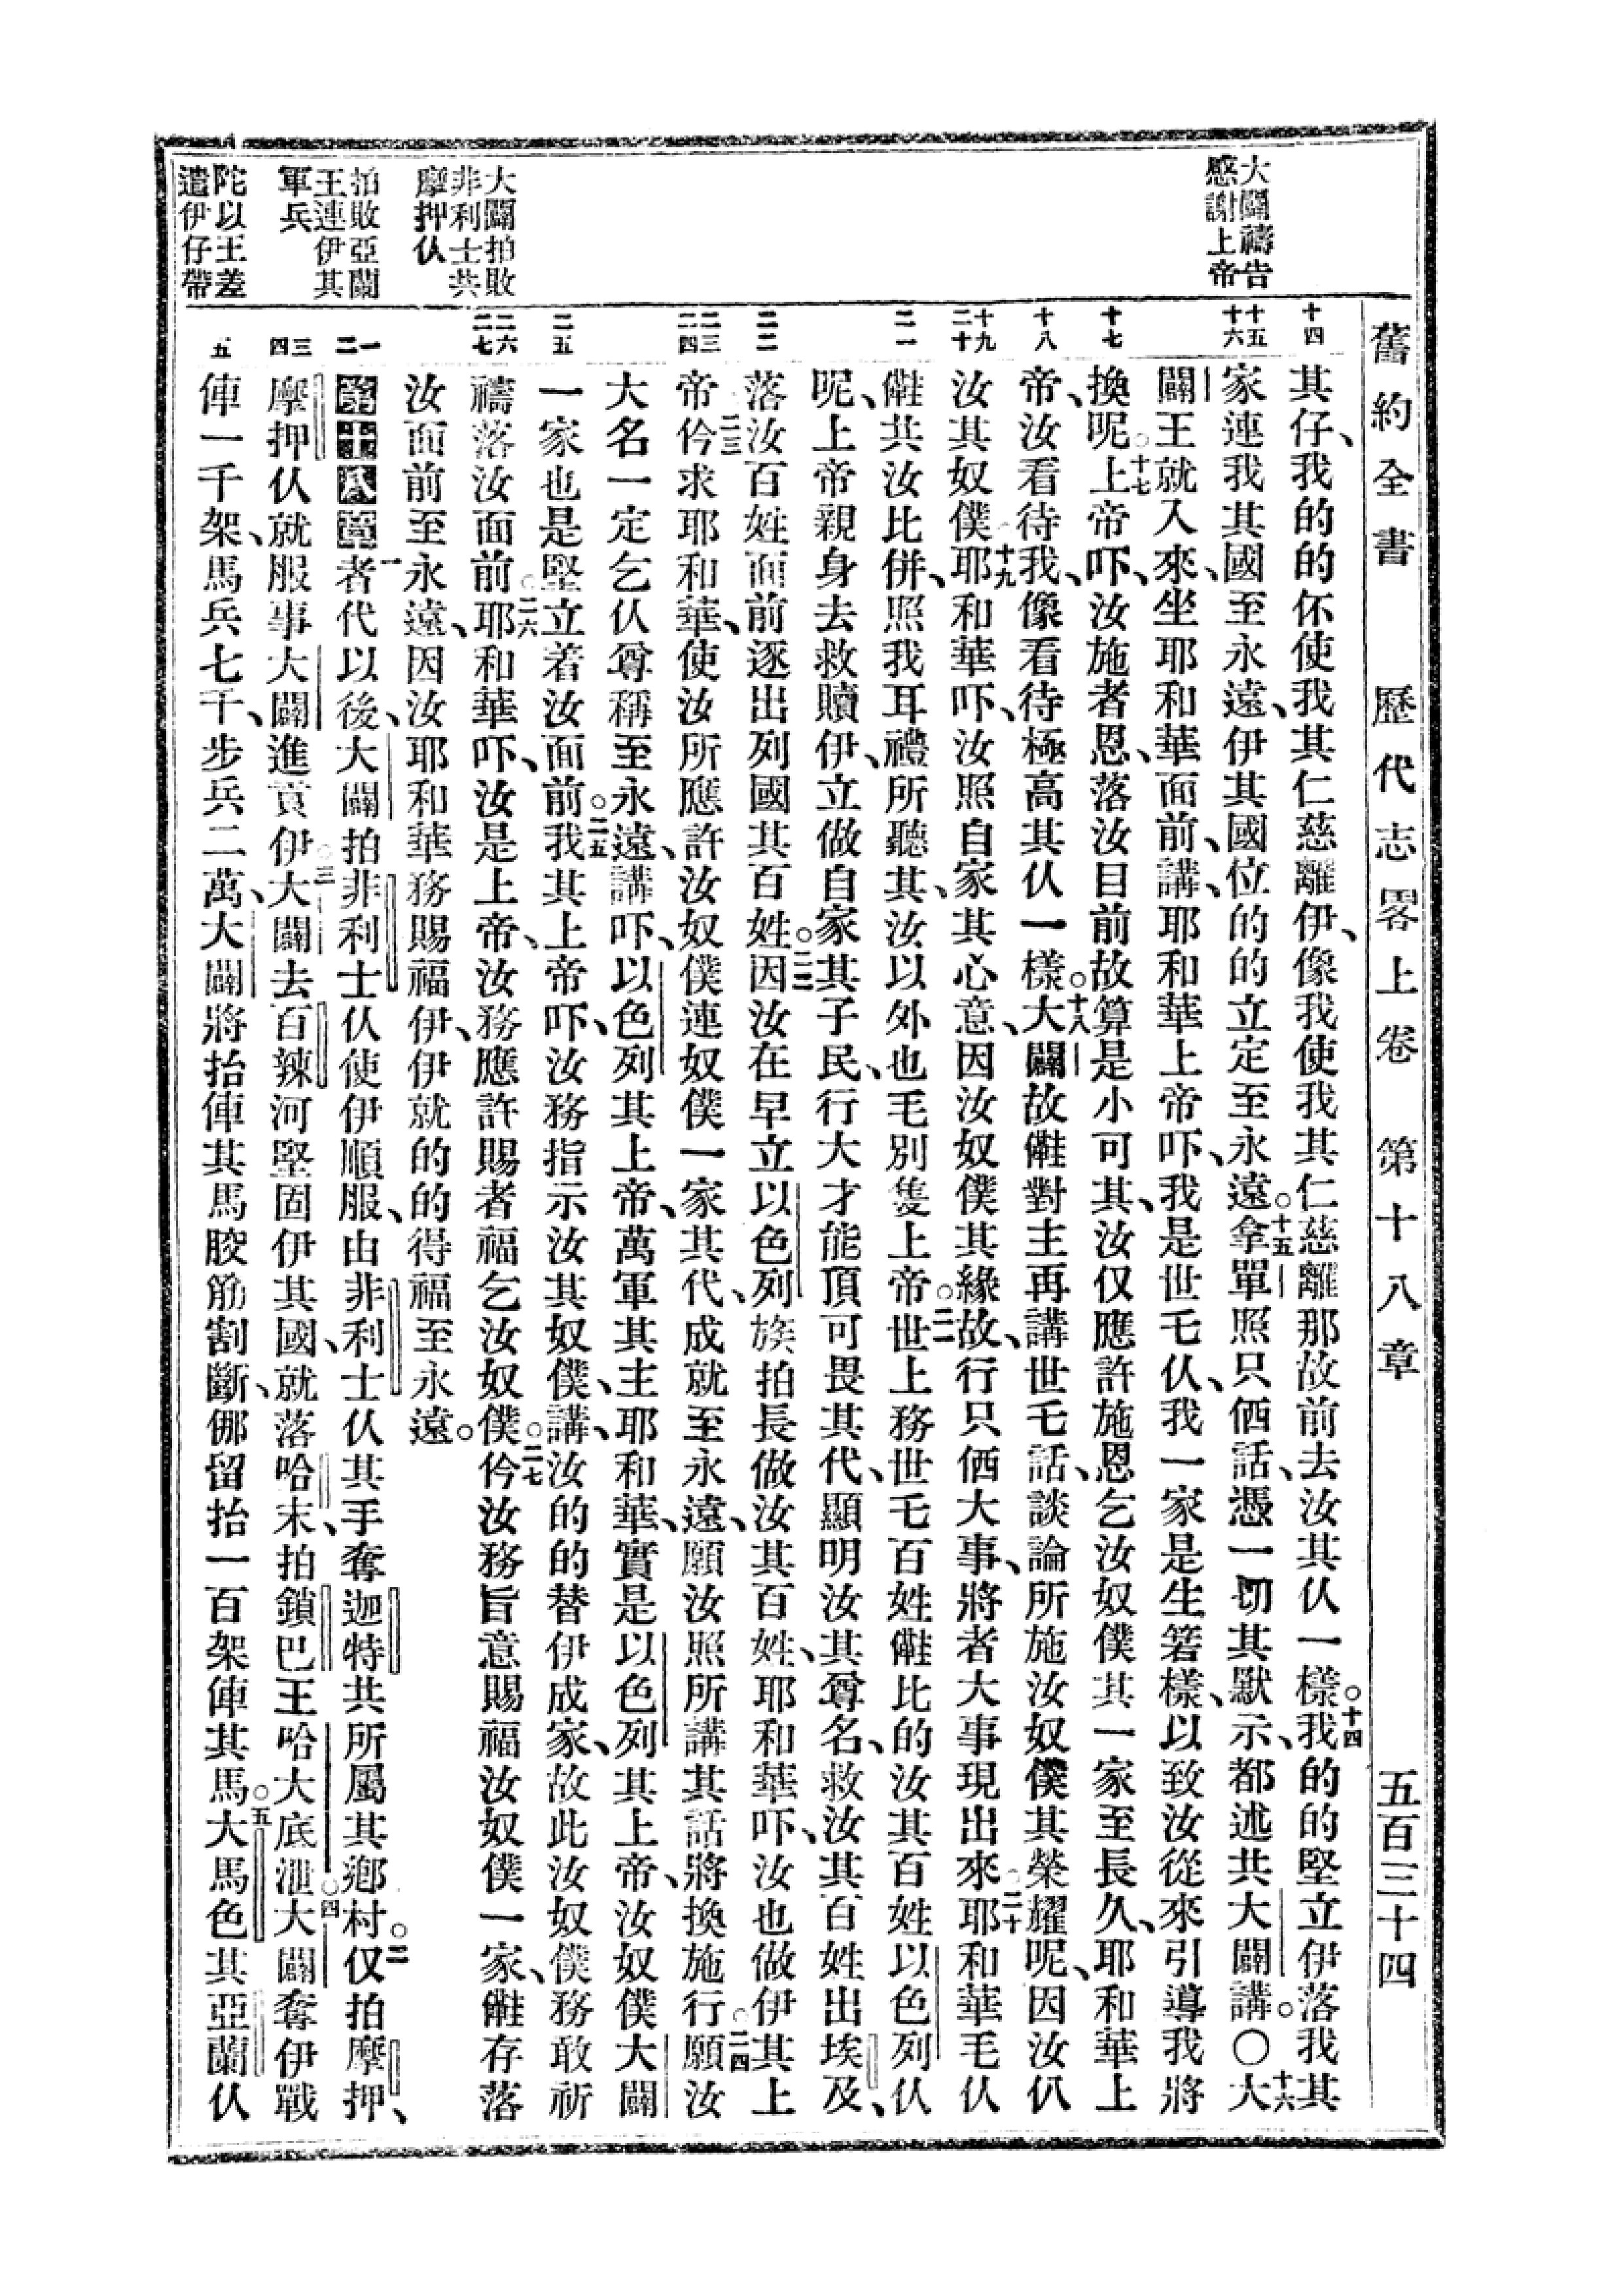 舊約全書 歷代志畧上卷 第十八章 五百三十四
大闢禱告
感謝上帝
大闢拍敗
非利士共
摩押仈
拍敗亞蘭
王連伊其
軍兵
陀以王差
遣伊仔帶
十四
十五
十六
十七
十八
十九
二十
二一
二二
二三
二四
二五
二六
二七
一
二
三
四
五
其仔、我的的伓使我其仁慈離伊、像我使我其仁慈離那故前去汝其仈一樣。十四我的的堅立伊落我其
家連我其國至永遠、伊其國位的的立定至永遠。十五拿單照只倻話、憑一切其默示、都述共大闢講。〇十六大
闢王就入來、坐耶和華面前、講、耶和華上帝吓、我是世乇仈、我一家是生箬樣、以致汝從來引導我將
換呢。十七上帝吓、汝施者恩、落汝目前故算是小可其、汝仅應許施恩乞汝奴僕其一家至長久、耶和華上
帝、汝看待我、像看待極高其仈一樣。十八大闢故㒕對主再講世乇話、談論所施汝奴僕其榮耀呢、因汝仈
汝其奴僕。十九耶和華吓、汝照自家其心意、因汝奴僕其緣故、行只倻大事、將者大事現出來。二十耶和華毛仈
㒕共汝比併、照我耳禮所聽其、汝以外也毛別隻上帝。二一世上務世乇百姓㒕比的汝其百姓以色列仈
呢、上帝親身去救贖伊、立做自家其子民、行大才能頂可畏其代、顯明汝其尊名、救汝其百姓出埃及、
落汝百姓面前逐出列國其百姓。二二因汝在早立以色列族拍長做汝其百姓、耶和華吓、汝也做伊其上
帝。二三仱求耶和華、使汝所應許汝奴僕連奴僕一家其代、成就至永遠、願汝照所講其話將換施行。二四願汝
大名一定乞仈尊稱至永遠、講、以色列其上帝、萬軍其主耶和華、實是以色列其上帝、汝奴僕大闢
一家也是堅立着汝面前。二五我其上帝吓、汝務指示汝其奴僕、講、汝的的替伊成家、故此汝奴僕務敢祈
禱落汝面前。二六耶和華吓、汝是上帝、汝務應許賜者福乞汝奴僕。二七仱汝務旨意賜福汝奴僕一家、㒕存落
汝面前至永遠、因汝耶和華務賜福伊、伊就的的得福至永遠。
第十八章 一者代以後、大闢拍非利士仈使伊順服、由非利士仈其手奪迦特共所屬其鄉村。二仅拍摩押、
摩押仈就服事大闢進貢伊。三大闢去百辣河堅固伊其國、就落哈末、拍鎖巴王哈大底泄。四大闢奪伊戰
俥一千架、馬兵七千、步兵二萬、大闢將抬俥其馬骹筋割斷、㑚留抬一百架俥其馬。五大馬色其亞蘭仈